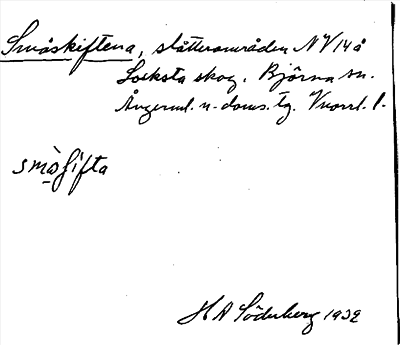 Småskiftena, slåtterområden NV14å
Locksta skog. Björna sn.
Ångerml. n. doms. tg. Vnorrl. l.
småʃifta
H A Söderberg 1932